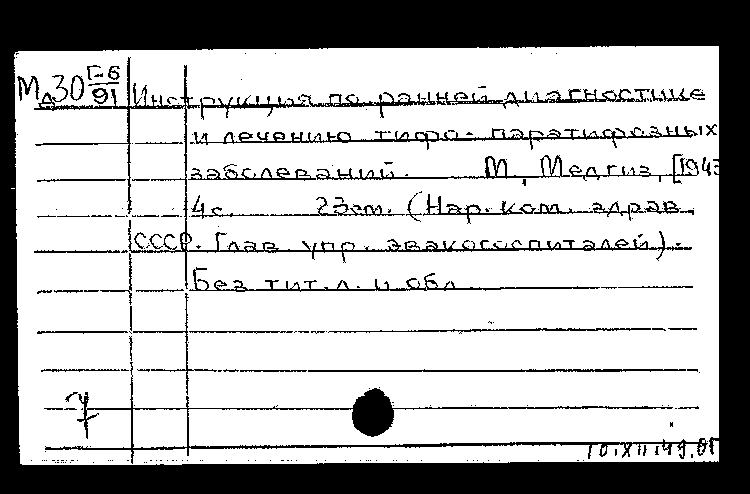 Мд30 Г-6/91 Инструкция по ранней диагностике
и лечению тифо-паратифозных
заболеваний. М, Медгиз, [1943
4с. 23см. (Нар. ком. здрав.
СССР. Глав. упр. эвакогоспиталей).
Без тит. л. и обл.
7
10.XII.49.